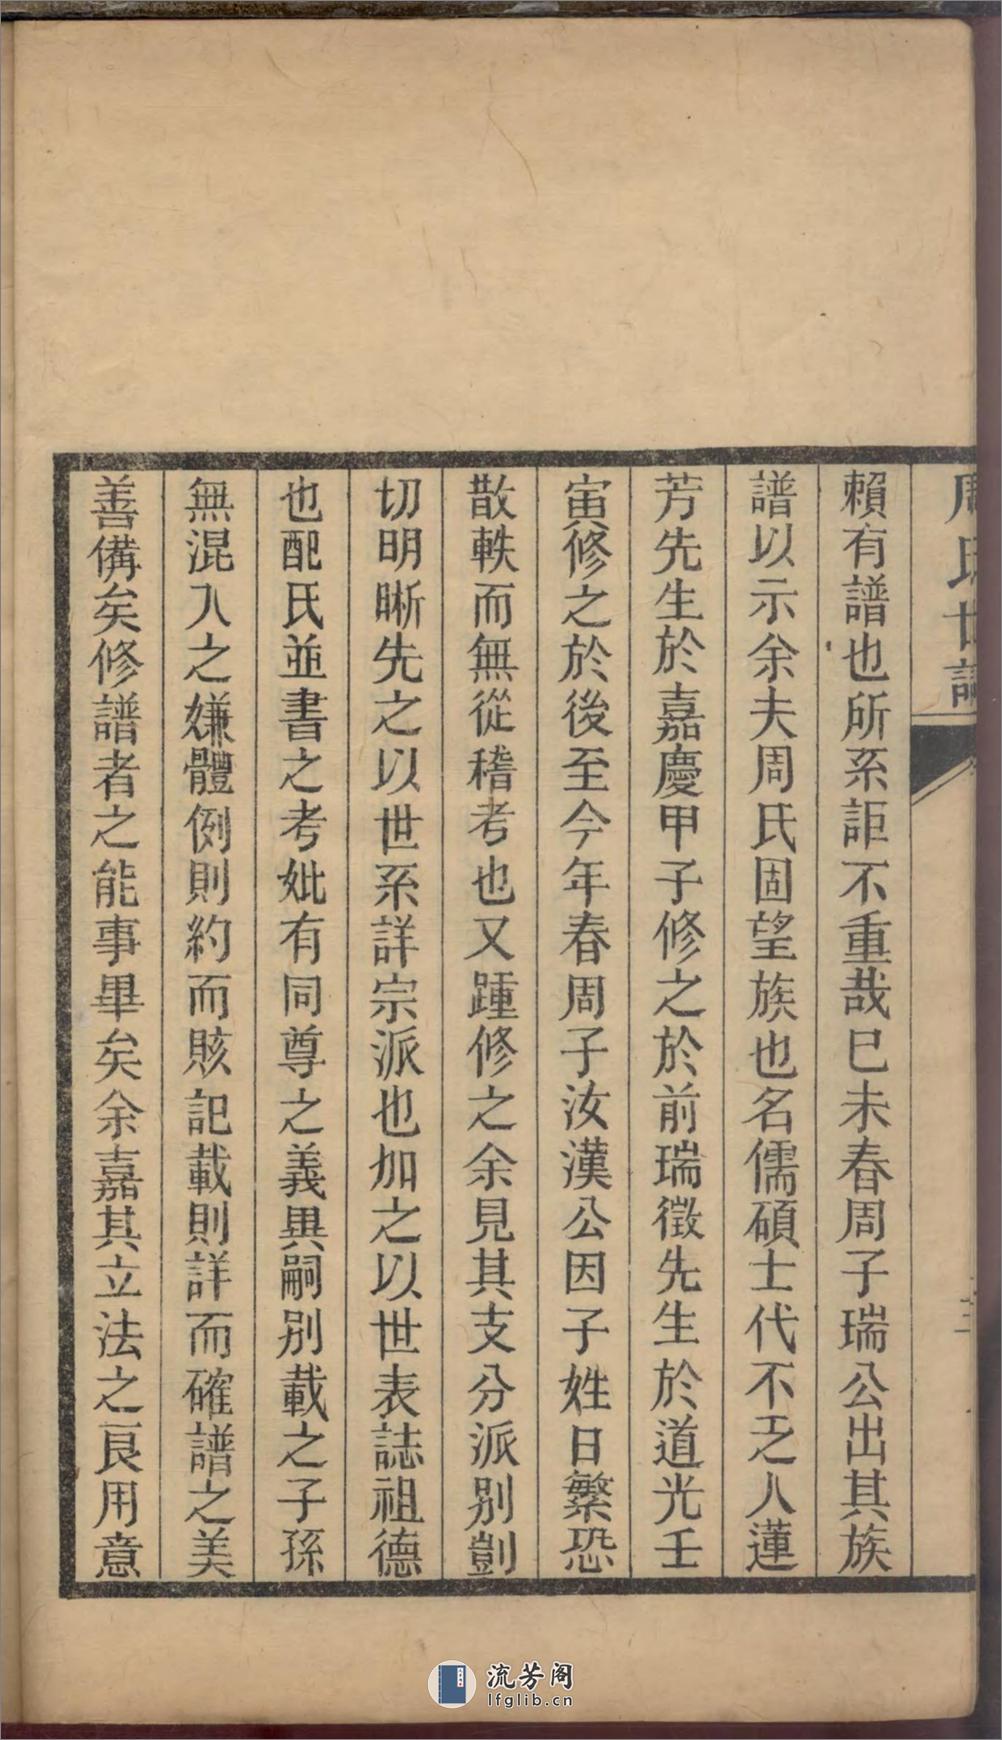 周氏世譜
賴有譜也所系詎不重哉巳未春周子瑞公出其族
譜以示余夫周氏固望族也名儒碩士代不乏人蓮
芳先生於嘉慶甲子修之於前瑞徵先生於道光壬
寅修之於後至今年春周子汝漢公因子姓日繁恐
散軼而無從稽考也又踵修之余見其支分派別剴
切明晰先之以世系詳宗派也加之以世表誌祖德
也配氏並書之考妣有同尊之義異嗣別載之子孫
無混入之嫌體例則約而賅記載則詳而確譜之美
善備矣修譜者之能事畢矣余嘉其立法之良用意
流芳阁
lfglib.cn